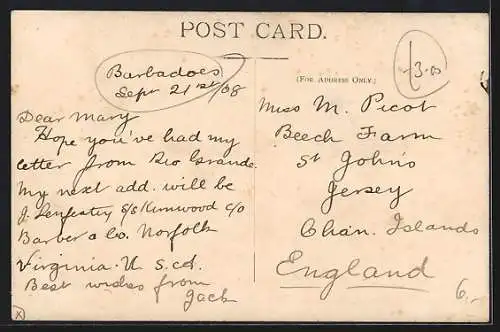 POST CARD.
(FOR ADDRESS ONLY.)
3.00
Barbadoes
Sepr 21st/08
Dear Mary
Hope you've had my
letter from Rio Grande.
My next add. will be
J. Lenfestey s/s Kinwood c/o
Barber & Co. Norfolk
Virginia. U.S.
Best wishes from
Jack
Miss M. Picot
Beech Farm
St John's
Jersey
Chan. Islands
England
6.-
x